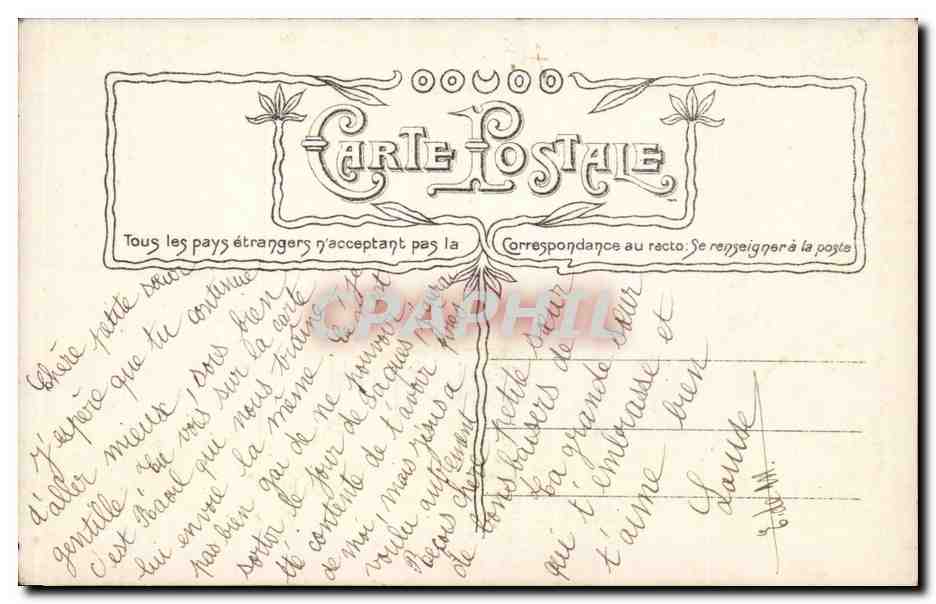 CARTE POSTALE
Tous les pays étrangers n'acceptant pas la Correspondance au recto: Se renseigner à la poste
CPAPHIL
Chère petite sœur
J'espère que tu continue
d'aller mieux, sois bien
gentille tu vois sur la carte
c'est Raoul qui nous traine, je
lui envoie la même. Ce n'est
pas bien gai de ne pouvoir
sortir le jour de Pâques j'aurai
été contente de t'avoir près
de moi mais Jésus a
voulu autrement
Reçois chère petite sœur
de bons baisers de
ta grande sœur
qui t'embrasse et
t'aime bien
Louise